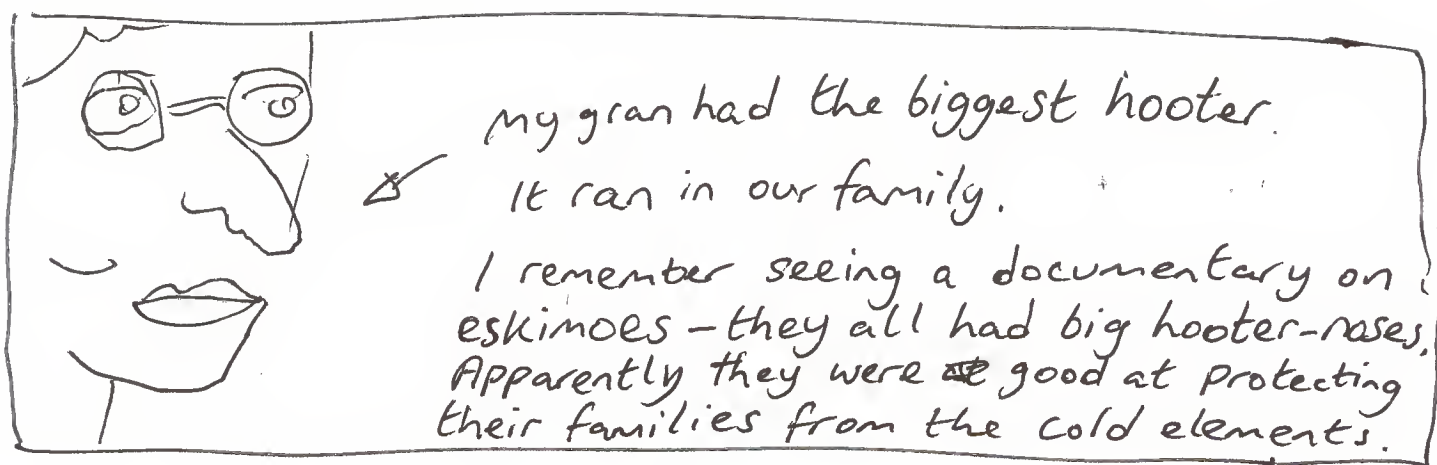 My gran had the biggest hooter.
It ran in our family.
I remember seeing a documentary on
eskimoes – they all had big hooter-noses.
Apparently they were good at protecting
their families from the cold elements.